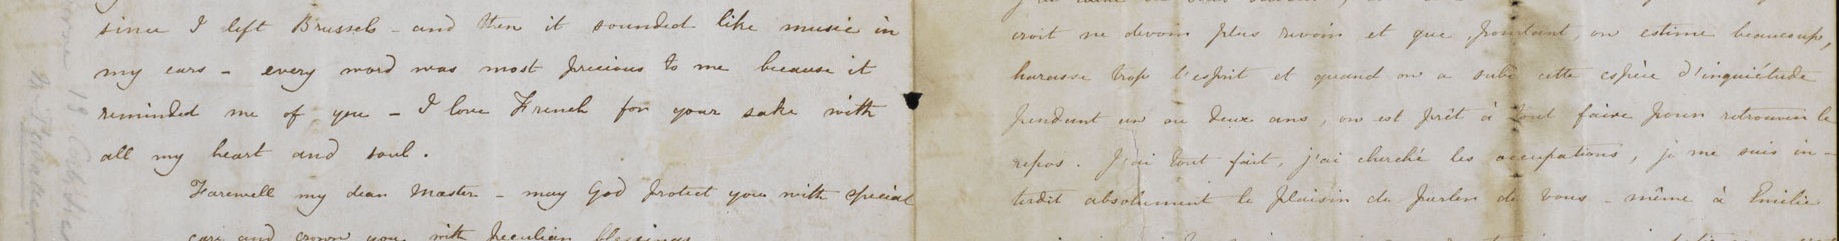 since I left Brussels - and then it sounded like music in
my ears - every word was most precious to me because it
reminded me of you - I love French for your sake with
all my heart and soul.
Farewell my dear Master - may God protect you with special
care and crown you with peculiar blessings
croit ne devoir plus revoir et que pourtant, on estime beaucoup,
harasse trop l'esprit et quand on a subi cette espèce d'inquiétude
pendant un ou deux ans, on est prêt à tout faire pour retrouver le
repos. J'ai tout fait, j'ai cherché les occupations, je me suis in-
terdit absolument le plaisir de parler de vous - même à Emilie